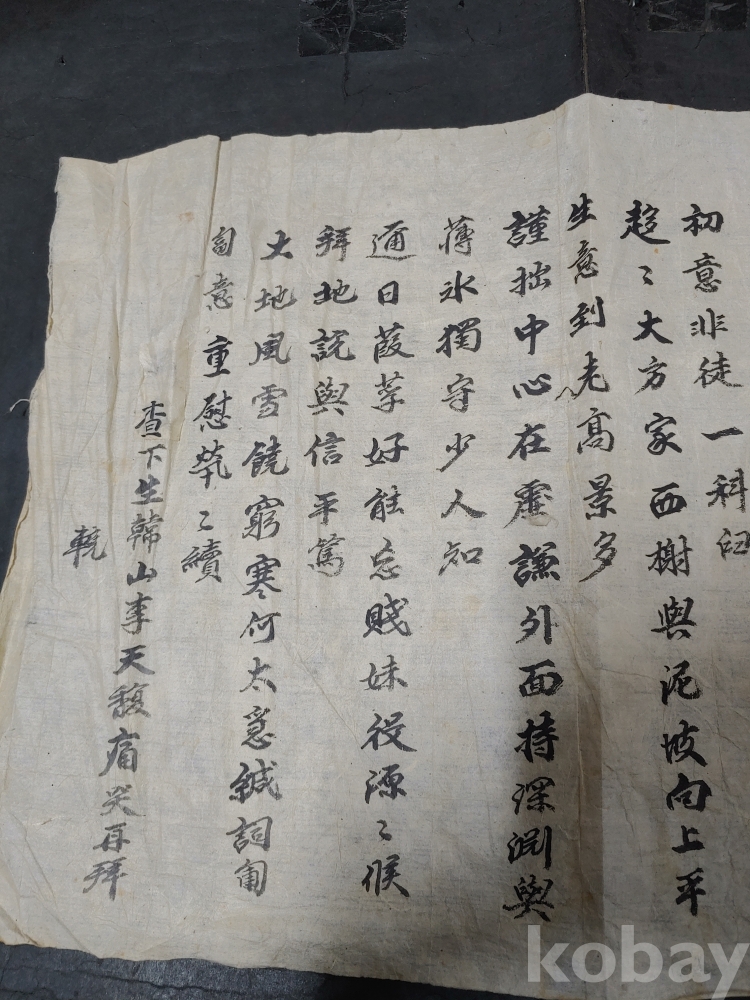 初意非徒一科臼
趍〻大方家西榭與泥坡向上平
生意到老高景多
謹拙中心在處謙外面持深淵與
薄氷獨守少人知
逋日葭莩好能忘賤妹役源〻候
拜地説與信平篤
大地風雪饒窮寒何太急緘詞匍
匐意重慰煢〻續
查下生韓山李天馥痛哭再拜
輓
kobay